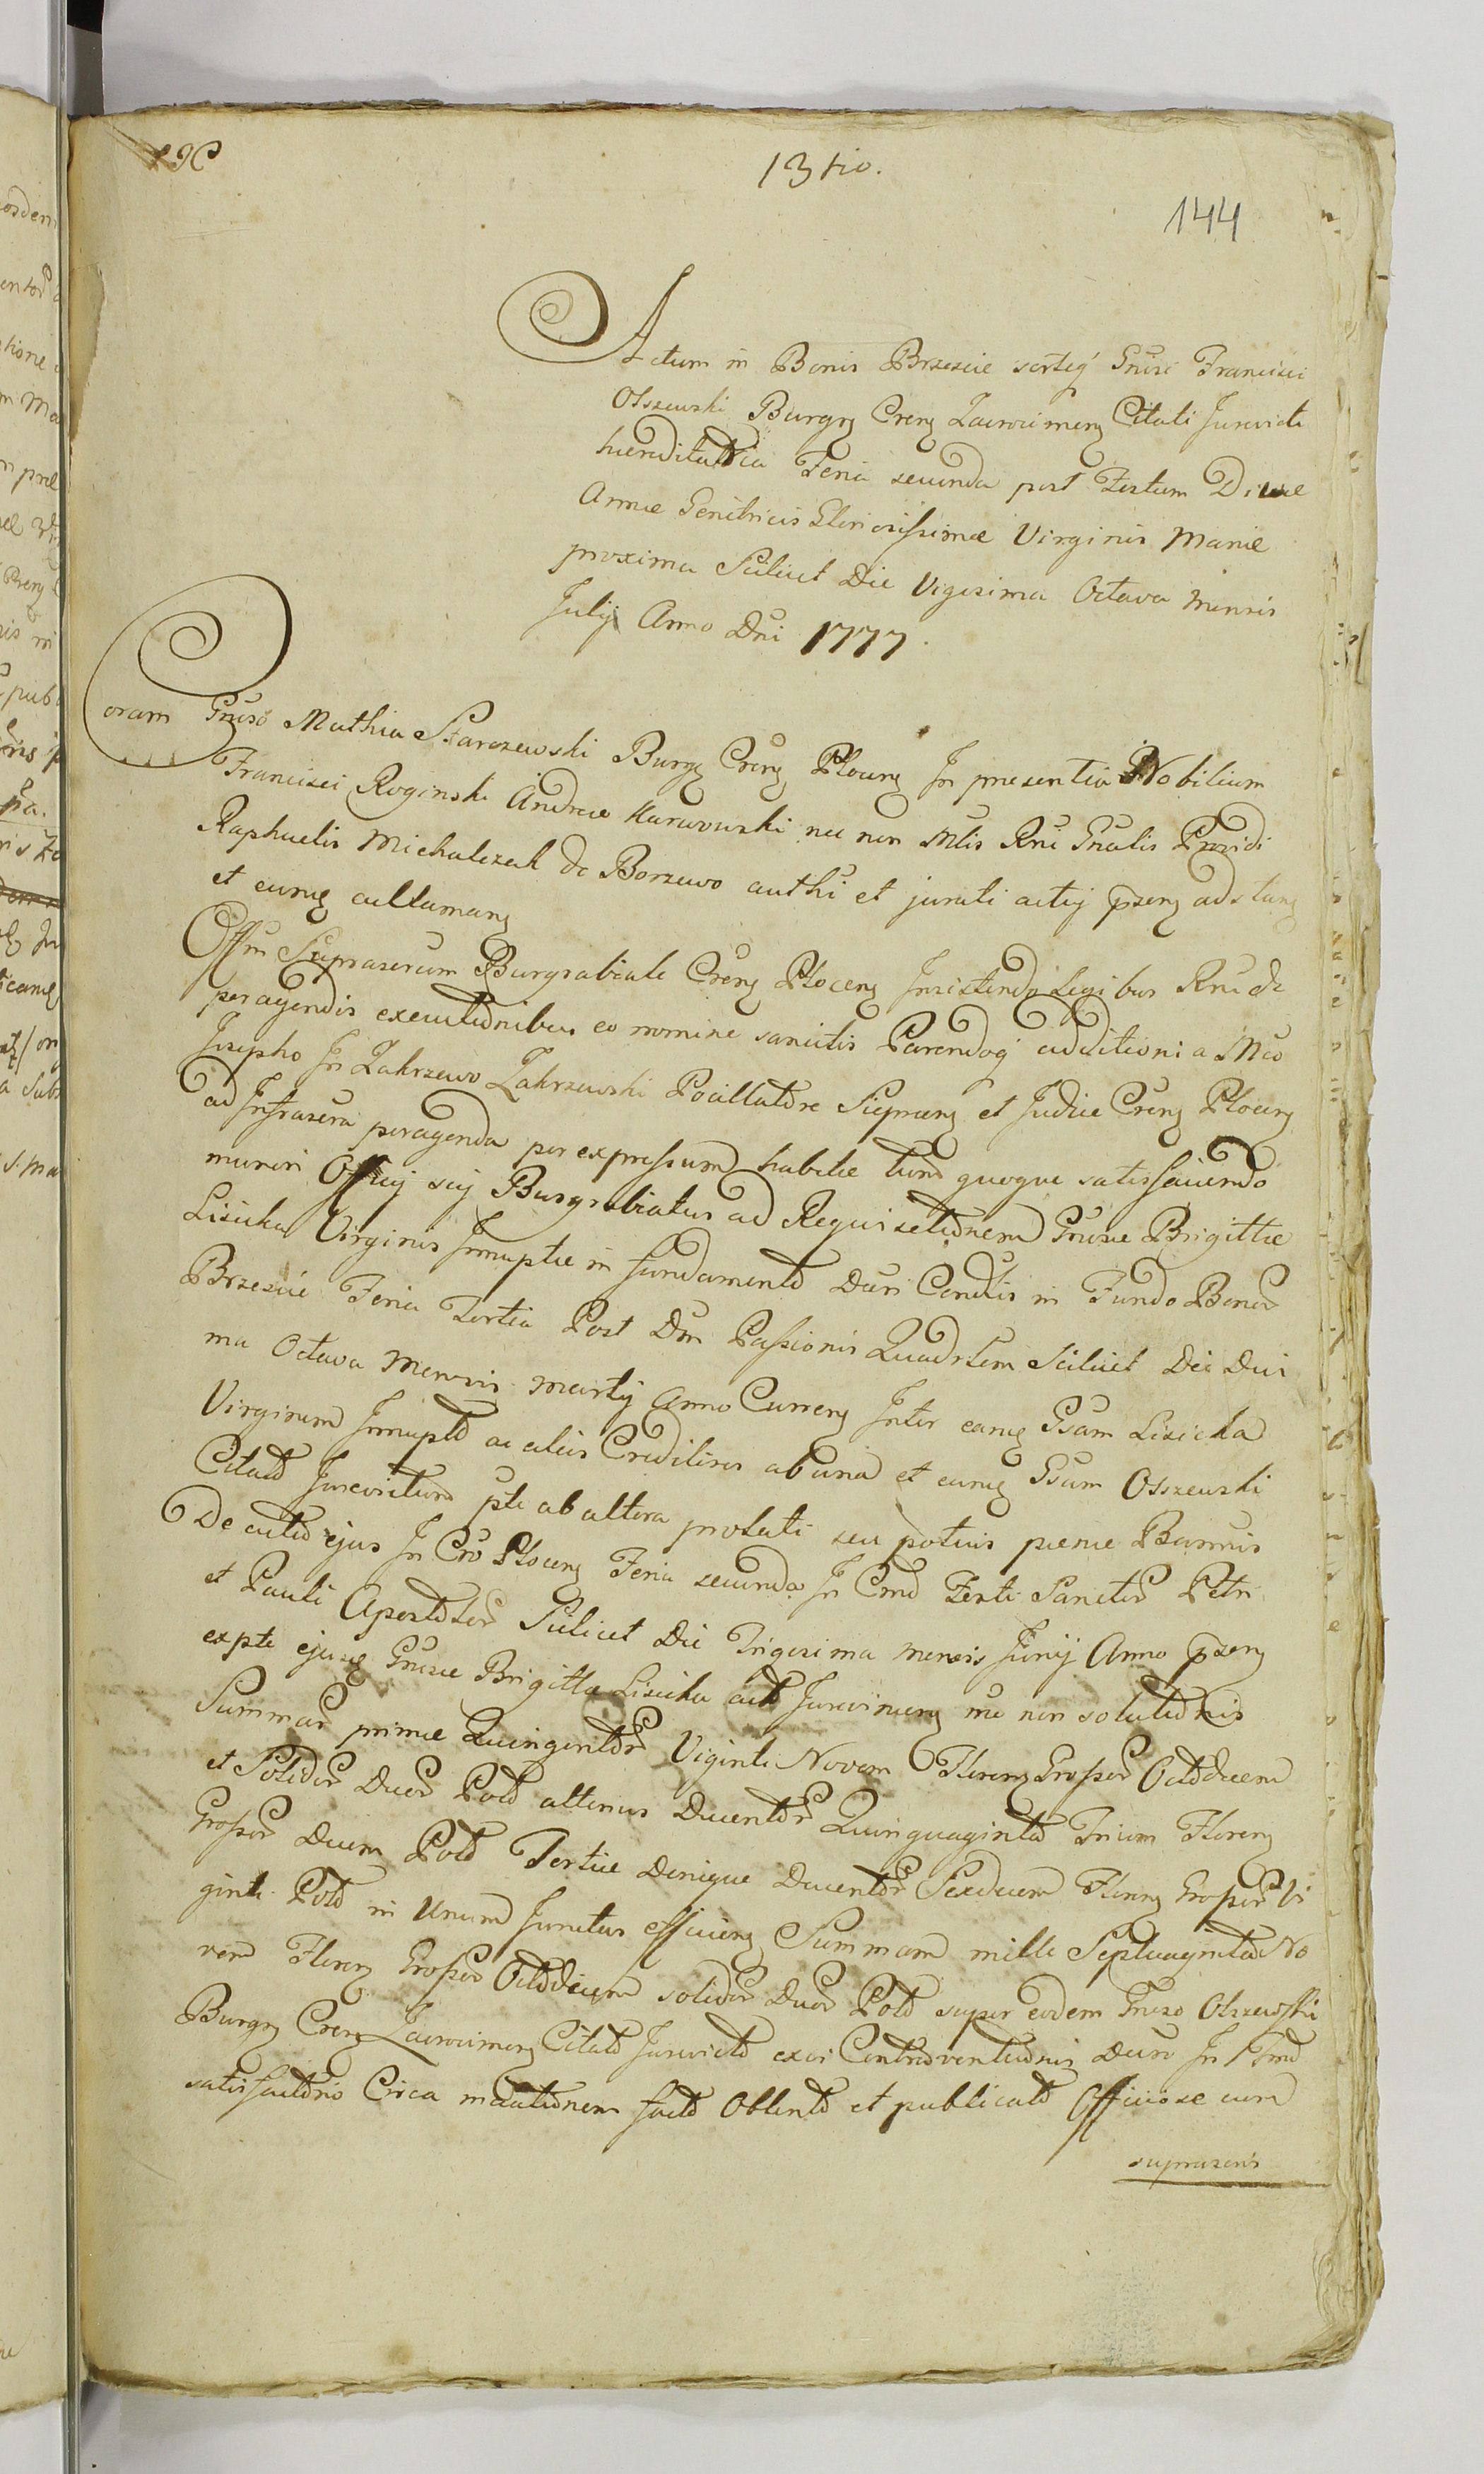 13tio.
144
Actum in Bonis Brzescie sortis Gnusi Francisci
Olszewski Burgrz Crenz Zacroczimenz Citati Jurevicti
haereditaria Feria secunda post Festum Divae
Annae Genitricis Gloriosissimae Virginis Mariae
proxima Scilicet Die Vigesima Octava Mensis
Julij Anno Dni 1777.
Coram Gnuso Mathia Starczewski Burgz Crenz Plocenz In presentia Nobilium
Francisci Roginski Andreae Karwowski nec non Mtis Rni Gnalis Providi
Raphaelis Michalczak de Borzewo authi et jurati actij pzenz adstanz
et eunq acclamanz
Offm Suprascrum Burgrabiale Crenz Plocenz Insistendo Legibus Rni de
peragendis executionibus eo nomine sancitis Parendoq additioni a Mco
Josepho In Zakrzewo Zakrzewski Pocillatore Sieprcenz et Judice Crenz Plocenz
ad Infrascra peragenda per expressum habitae tum quoque satisfaciendo
muneri Officij sui Burgrabiatus ad Requisitionem Gnusae Brigittae
Lisicka Virginis Innuptae in fundamento Duri Conditis in Fundo Bonor
Brzescie Feria Tertia Post Dni Passionis Quadrlem Scilicet Die Deci
ma Octava Mensis Martij Anno Currenz Inter eanq Gsam Lisicka
Virginem Innupto ac aliis Creditires ab una et eunq Gsum Olszewski
Citato Jurevictum pte ab altera prolati seu potius paenae Bannis
De actio ejus In Cro Plocenz Feria secunda In Cmo Festi Sanctor Petri
et Pauli Apostolor Scilicet Die Trigesima Mensis Junij Anno pzenz
expte ejusq Gnusae Brigitta Lisicka act Jurevincenz nec non solutionis
Summar primae Quingentor Viginti Novem Florenz Grossor Octodecem
et Solidor Duor Polo alterius Ducentor Quinquaginto Trium Florenz
Grossor Decem Polo Tertiae Denique Ducentor Sexdecem Florenz Grossor Vi
ginti Polo in Unum Junctus efficienz Summam mille Septuaginta No
vem Florenz Grossor Octodecem solidor Duor Polo super eodem Gnuso Olszewski
Burgz Crenz Zacroczimenz Citato Jurevicto exvi Controventionis Duro In Tmo
satisfactonis Circa mutationem facto Oblento et publicato Officiose cum
suprascris